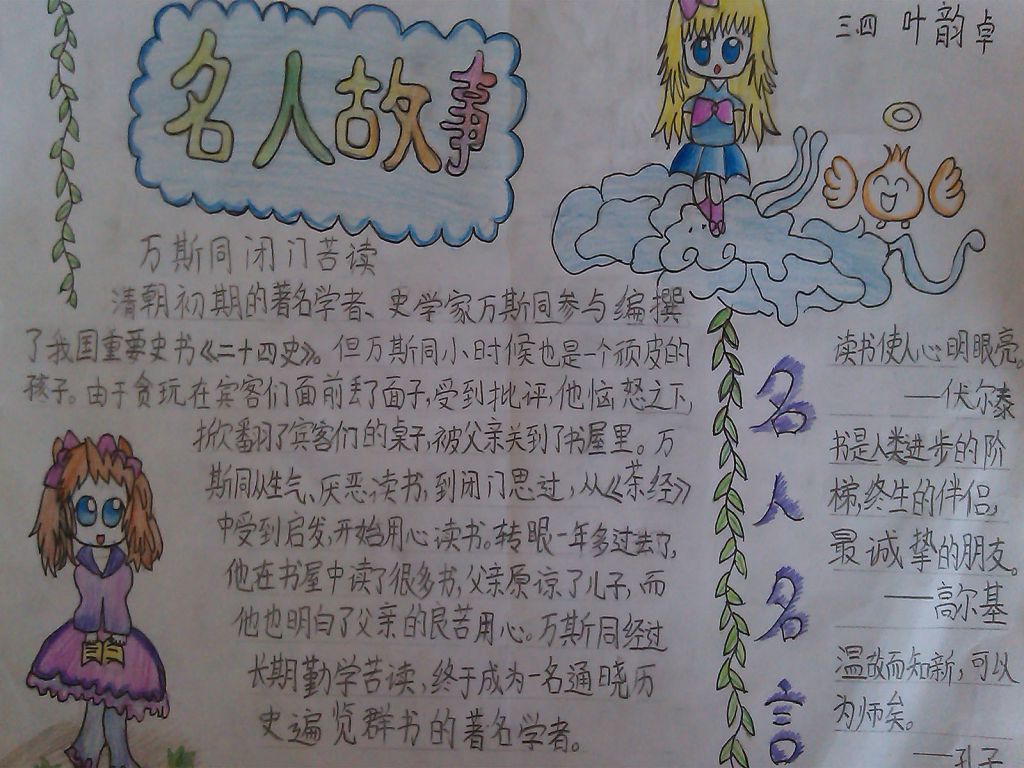 三.四 叶韵卓
名人故事
万斯同闭门苦读
清朝初期的著名学者、史学家万斯同参与编撰
了我国重要史书《二十四史》。但万斯同小时候也是一个顽皮的
孩子。由于贪玩,在宾客们面前丢了面子,受到批评,他恼怒之下,
掀翻了宾客们的桌子,被父亲关到了书屋里。万
斯同从生气、厌恶读书,到闭门思过,从《茶经》
中受到启发,开始用心读书。转眼一年多过去了,
他在书屋中读了很多书,父亲原谅了儿子,而
他也明白了父亲的良苦用心。万斯同经过
长期勤学苦读,终于成为一名通晓历
史遍览群书的著名学者。
名人名言
读书使人心明眼亮。
——伏尔泰
书是人类进步的阶
梯,终生的伴侣,
最诚挚的朋友。
——高尔基
温故而知新,可以
为师矣。
——孔子